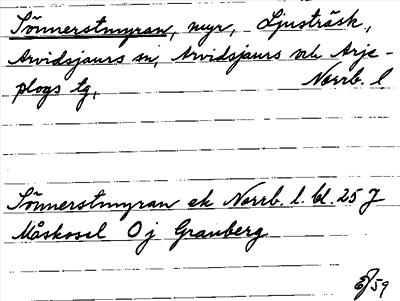 Sönnerstmyran, myr, Ljusträsk,
Arvidsjaurs sn, Arvidsjaurs och Arje-
plogs tg, Norrb. l
Sönnerstmyran ek Norrb. l. bl. 25 J
Måskosel O j Granberg
59